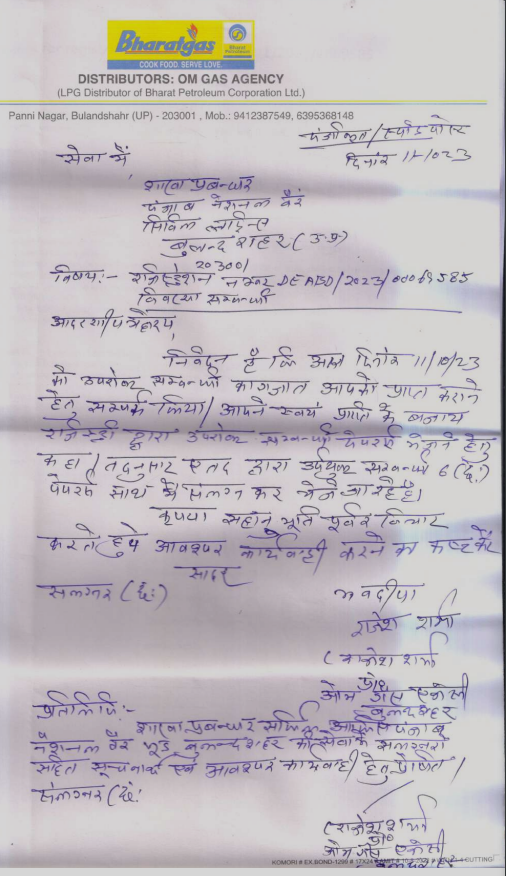 Bharatgas
COOK FOOD. SERVE LOVE.
Bharat Petroleum
DISTRIBUTORS: OM GAS AGENCY
(LPG Distributor of Bharat Petroleum Corporation Ltd.)
Panni Nagar, Bulandshahr (UP) - 203001 , Mob.: 9412387549, 6395368148
पंजीकृत/स्पीड पोस्ट
सेवा में
दिनांक 11-10-23
शाखा प्रबन्धक
पंजाब नेशनल बैंक
सिविल लाईन्स
बुलन्दशहर (उ-प्र)
203001
विषय:- रजिस्ट्रेशन नम्बर DEABD/2023/00069585
सम्बन्धी
निवेदन है कि आज दिनांक 11/10/23
को उपरोक्त सम्बन्धी कागजात आपको प्राप्त कराने
हेतु सम्पर्क किया/ आपने स्वयं प्राप्ति के बजाय
रजिस्ट्री द्वारा उपरोक्त सम्बन्धी पेपर्स भेजने हेतु
कहा/ तदनुसार एतद द्वारा उपर्युक्त सम्बन्धी 6 (छ:)
पेपर्स साथ में संलग्न कर भेजे जा रहे है।
कृपया सहानुभूति पूर्वक विचार
करते हुये आवश्यक कार्यवाही करने का कष्ट करें
सादर
संलग्नक (छ:)
भवदीय
राजेश शर्मा
(राजेश शर्मा
प्रो०
ओम गैस एजेन्सी
बुलन्दशहर
प्रतिलिपि:-
शाखा प्रबन्धक सर्किल आफिस पंजाब
नेशनल बैंक भूड़ बुलन्दशहर की सेवा में संलग्नक
सहित सूचनार्थ एवं आवश्यक कार्यवाही हेतु प्रेषित/
संलग्नक (छ:
(राजेश शर्मा
प्रो०
ओम गैस एजेन्सी
बुलन्दशहर